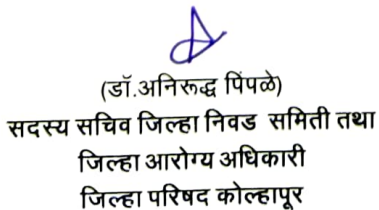 (डॉ.अनिरूद्ध पिंपळे)
सदस्य सचिव जिल्हा निवड समिती तथा
जिल्हा आरोग्य अधिकारी
जिल्हा परिषद कोल्हापूर